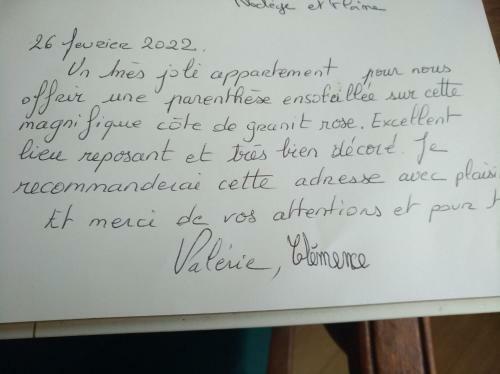 Nadège et Maine
26 fevrier 2022.
Un très joli appartement pour nous
offrir une parenthèse ensoleillée sur cette
magnifique côte de granit rose. Excellent
lieu reposant et très bien décoré. Je
recommanderai cette adresse avec plaisi
Et merci de vos attentions et pour t
Valérie, Clémence